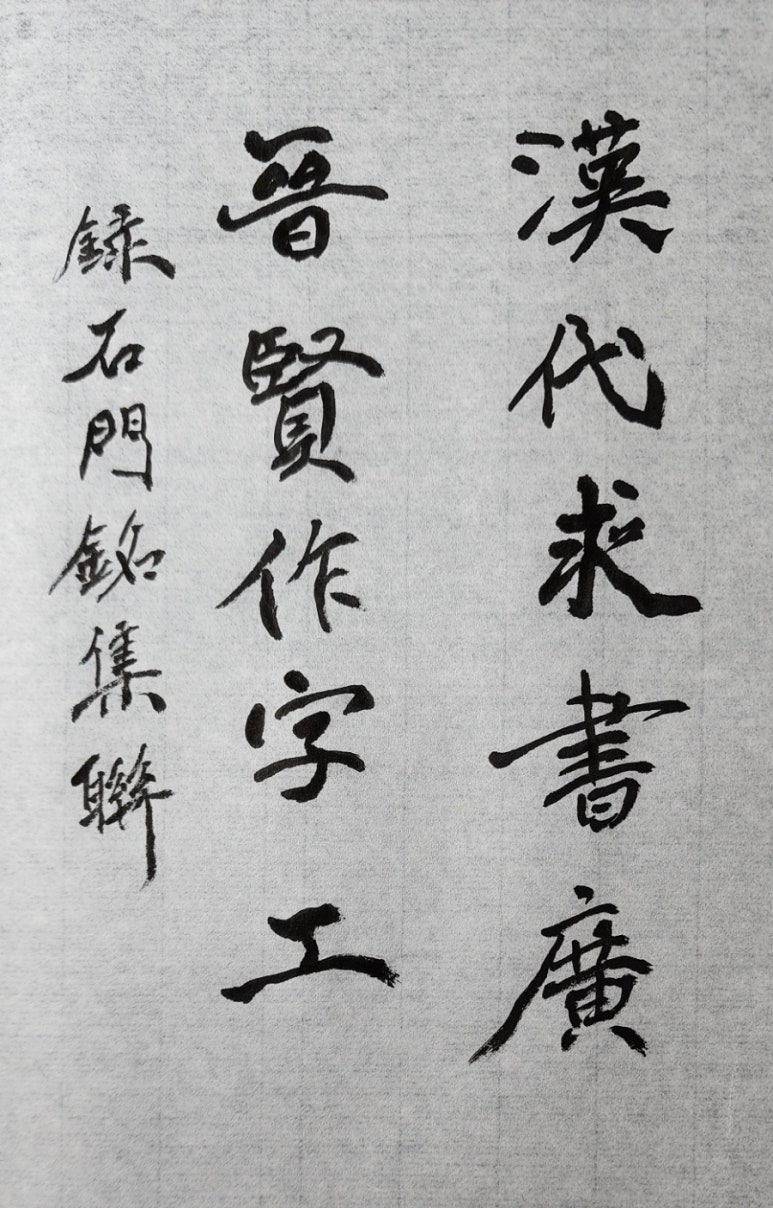 漢代求書廣
晉賢作字工
録石門銘集聯